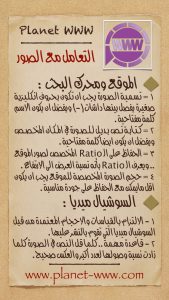 Planet WWW
التعامل مع الصور
الموقع ومحرك البحث :
١ - تسمية الصورة يجب أن تكون بحروف انكليزية
صغيرة يفصل بينها داشات (-) ويفضل أن يكون الاسم
كلمة مفتاحية .
٢ - كتابة نص بديل للصورة في المكان المخصص
ويفضل أن يكون أيضاً كلمة مفتاحية .
٣ - الحفاظ على الـ Ratio المخصص لصور الموقع
.. ويعرف الـ Ratio بأنه نسبة العرض إلى الارتفاع .
٤ - حجم الصورة المخصصة للموقع يجب أن يكون
أقل ما يمكن مع الحفاظ على جودة مناسبة .
السوشيال ميديا :
١ - الالتزام بالقياسات والأحجام المعتمدة من قبل
السوشيال ميديا التي تقوم بالنشر عليها .
٢ - قاعدة مهمة .. كلما قل النص في الصورة كلما
زادت نسبة وصولها لعدد أكبر والعكس صحيح .
www.planet-www.com